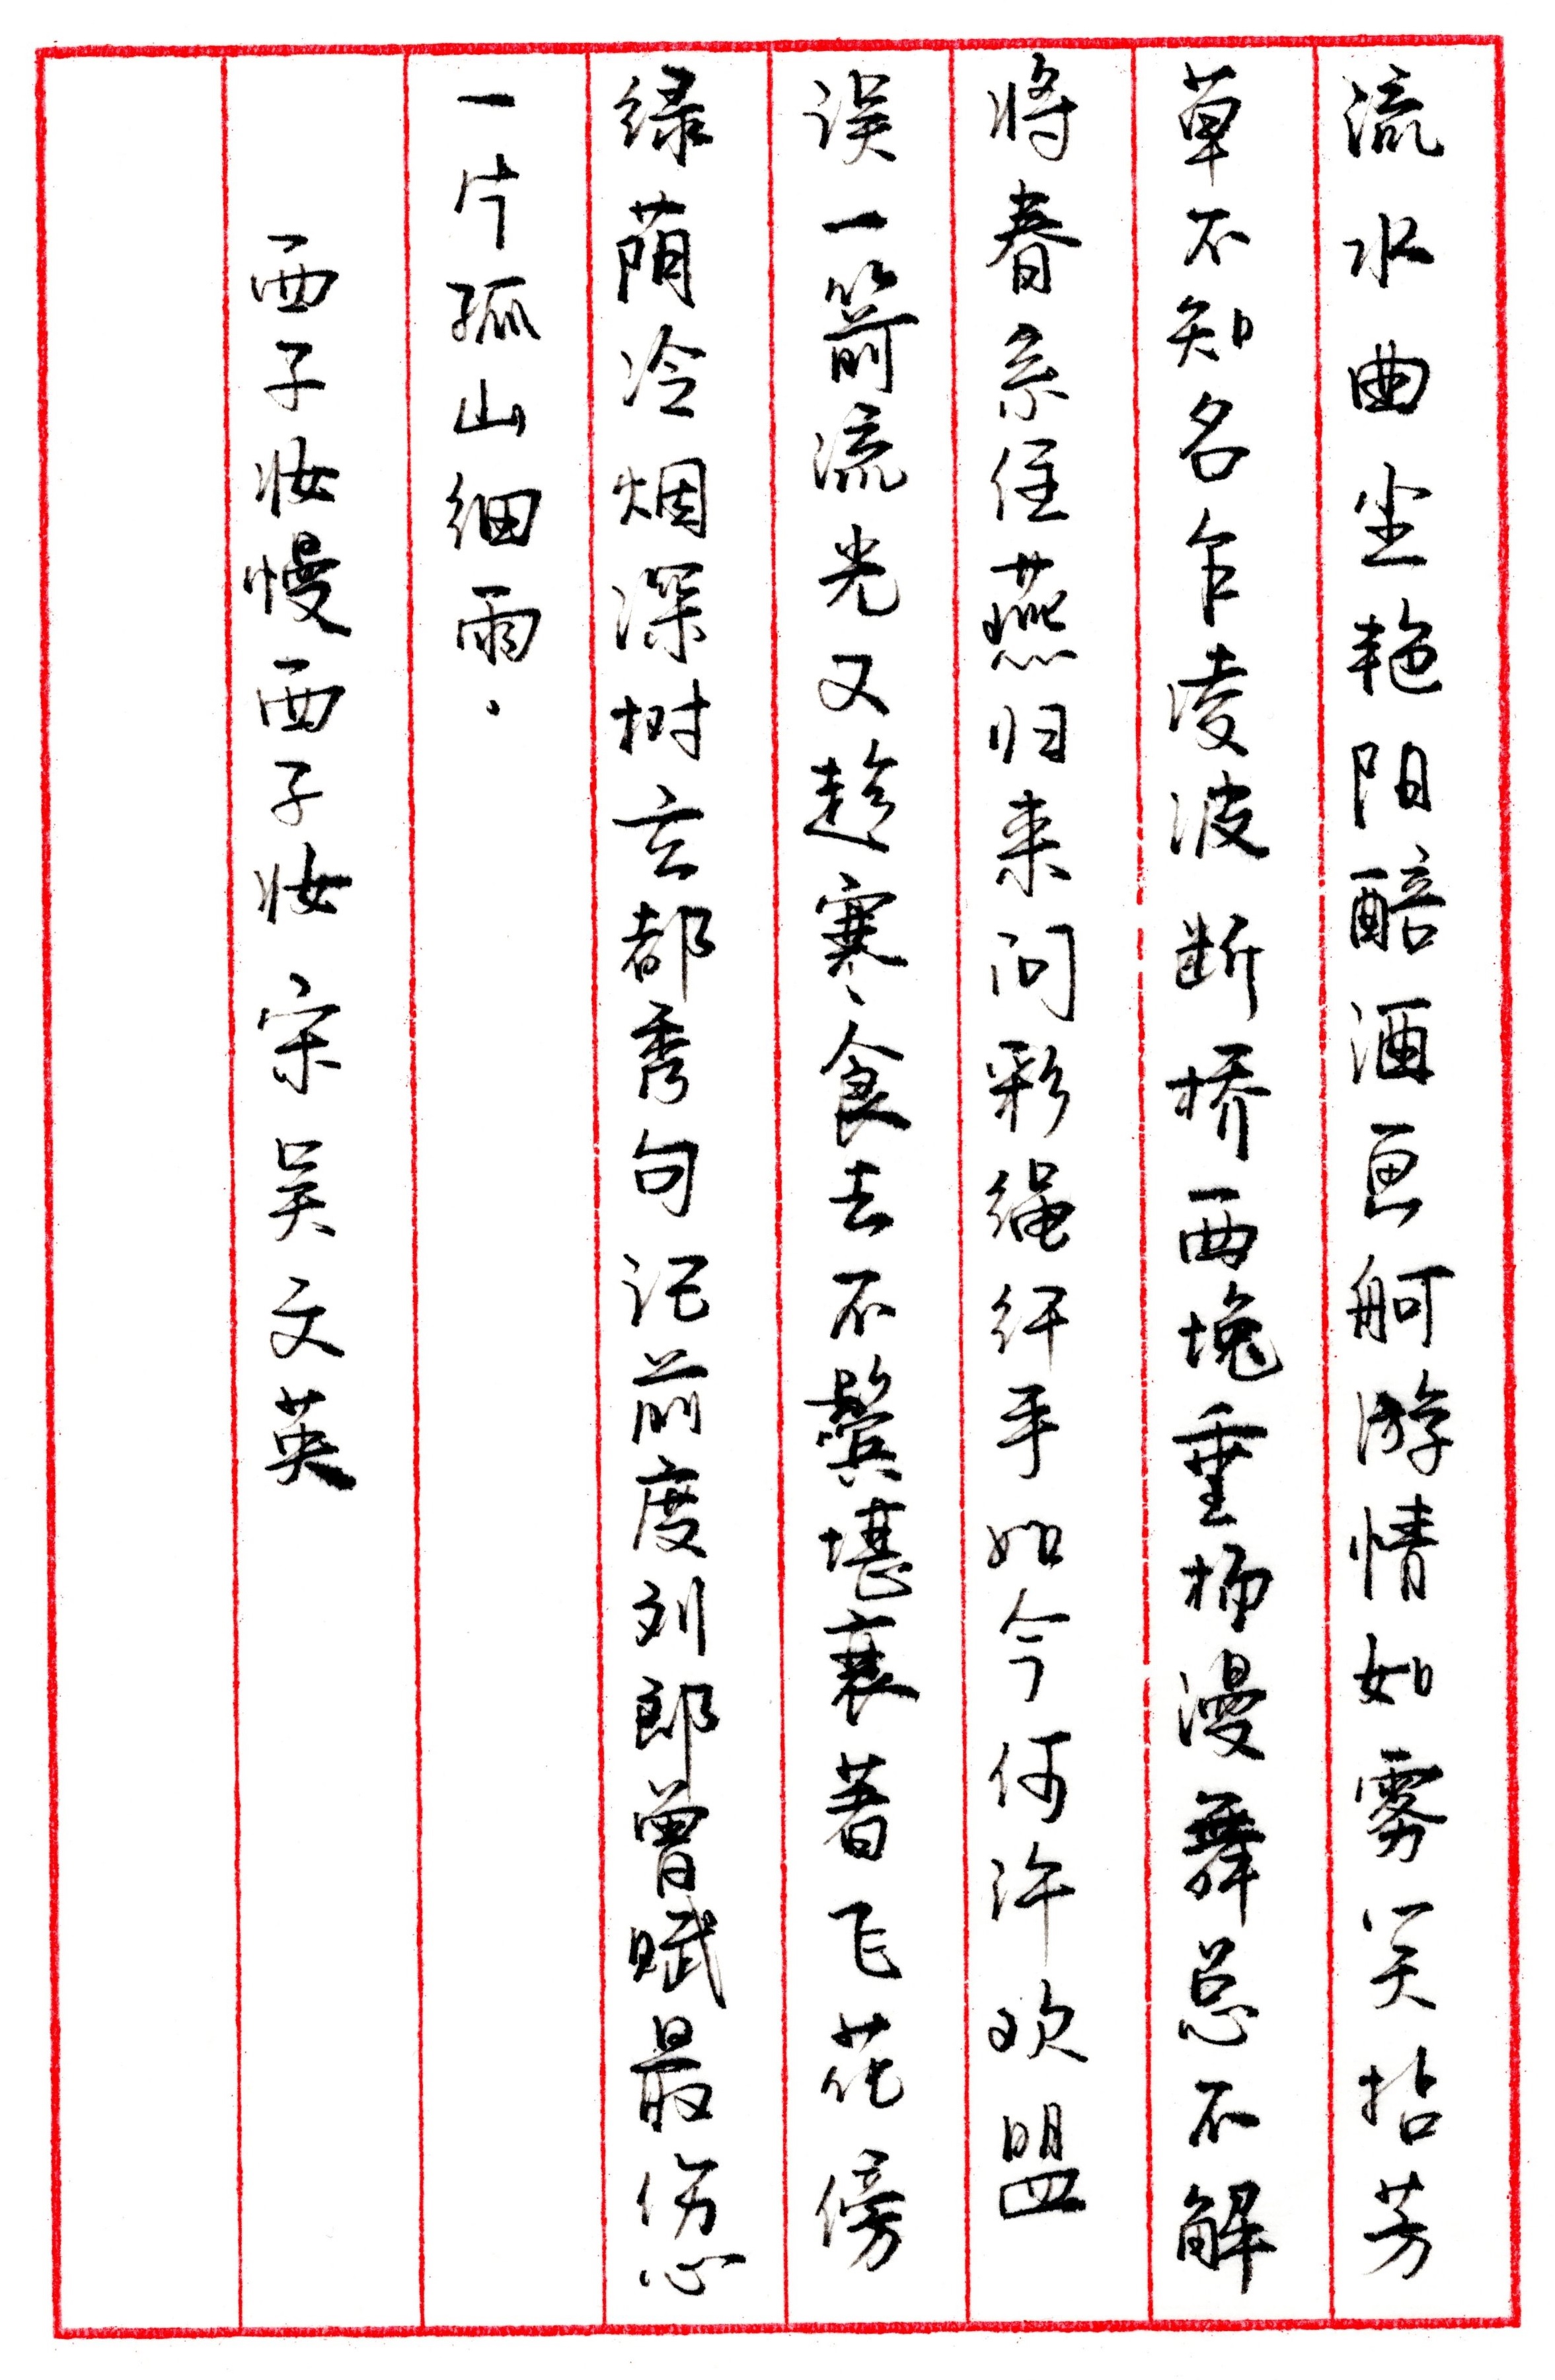 流水曲尘艳阳醅酒画舸游情如雾笑拈芳
草不知名乍凌波断桥西堍垂杨漫舞总不解
将春系住燕归来问彩绳纤手如今何许欢盟
误一箭流光又趁寒食去不鬓堪衰著飞花傍
绿荫冷烟深树玄都秀句记前度刘郎曾赋最伤心
一片孤山细雨.
西子妆慢西子妆宋吴文英